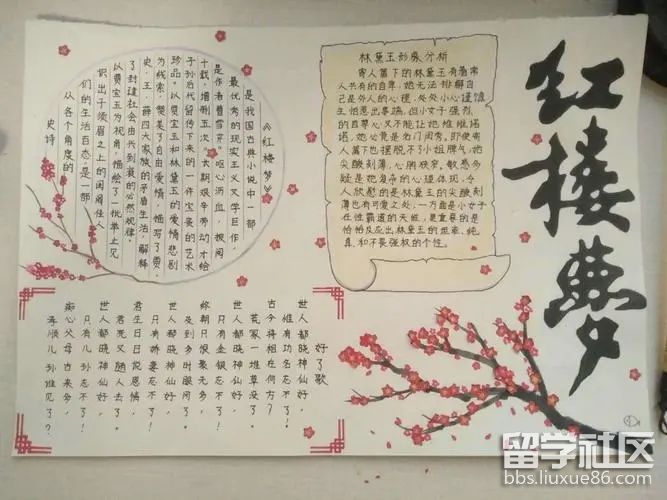 红楼梦
林黛玉形象分析
寄人篱下的林黛玉有着常
人共有的自卑,她无法排解自
己是外人的心理,处处小心谨慎
生怕惹出事端。但小女子强烈
的自尊心又不能让她唯唯诺
诺,她必竟是名门闺秀。即使寄
人篱下也摆脱不了小姐脾气,她
尖酸刻薄,心胸狭窄,敏感多
疑是她复杂的心理体现,令
人欣慰的是林黛玉的尖酸刻
薄也有可爱之处,一方面是小女子
在性霸道的天成,更重要的是
恰恰反应出林黛玉的坦率,纯
真,和不畏强权的个性。
《红楼梦》
是我国古典小说中一部
最优秀的现实主义文学巨作,
是作者曹雪芹“呕心沥血,披阅
十载,增删五次”,长期艰辛劳动才给
子孙后代留传下来的一件宝贵的艺术
珍品。以贾宝玉和林黛玉的爱情悲剧
为线索,赞美了自由爱情,描写了贾、
史、王、薛四大家族的矛盾生活,解释
了封建社会由兴到衰的必然规律。
以贾宝玉为视角,描绘了一批举止见
识出于须眉之上的闺阁佳人
们的生活百态,是一部
从各个角度的
史诗
好了歌
世人都晓神仙好,
惟有功名忘不了!
古今将相在何方?
荒冢一堆草没了。
世人都晓神仙好,
只有金银忘不了!
终朝只恨聚无多,
及到多时眼闭了。
世人都晓神仙好,
只有娇妻忘不了!
君生日日说恩情,
君死又随人去了。
世人都晓神仙好,
只有儿孙忘不了!
痴心父母古来多,
孝顺儿孙谁见了?
留学社区
bbs.liuxue86.com